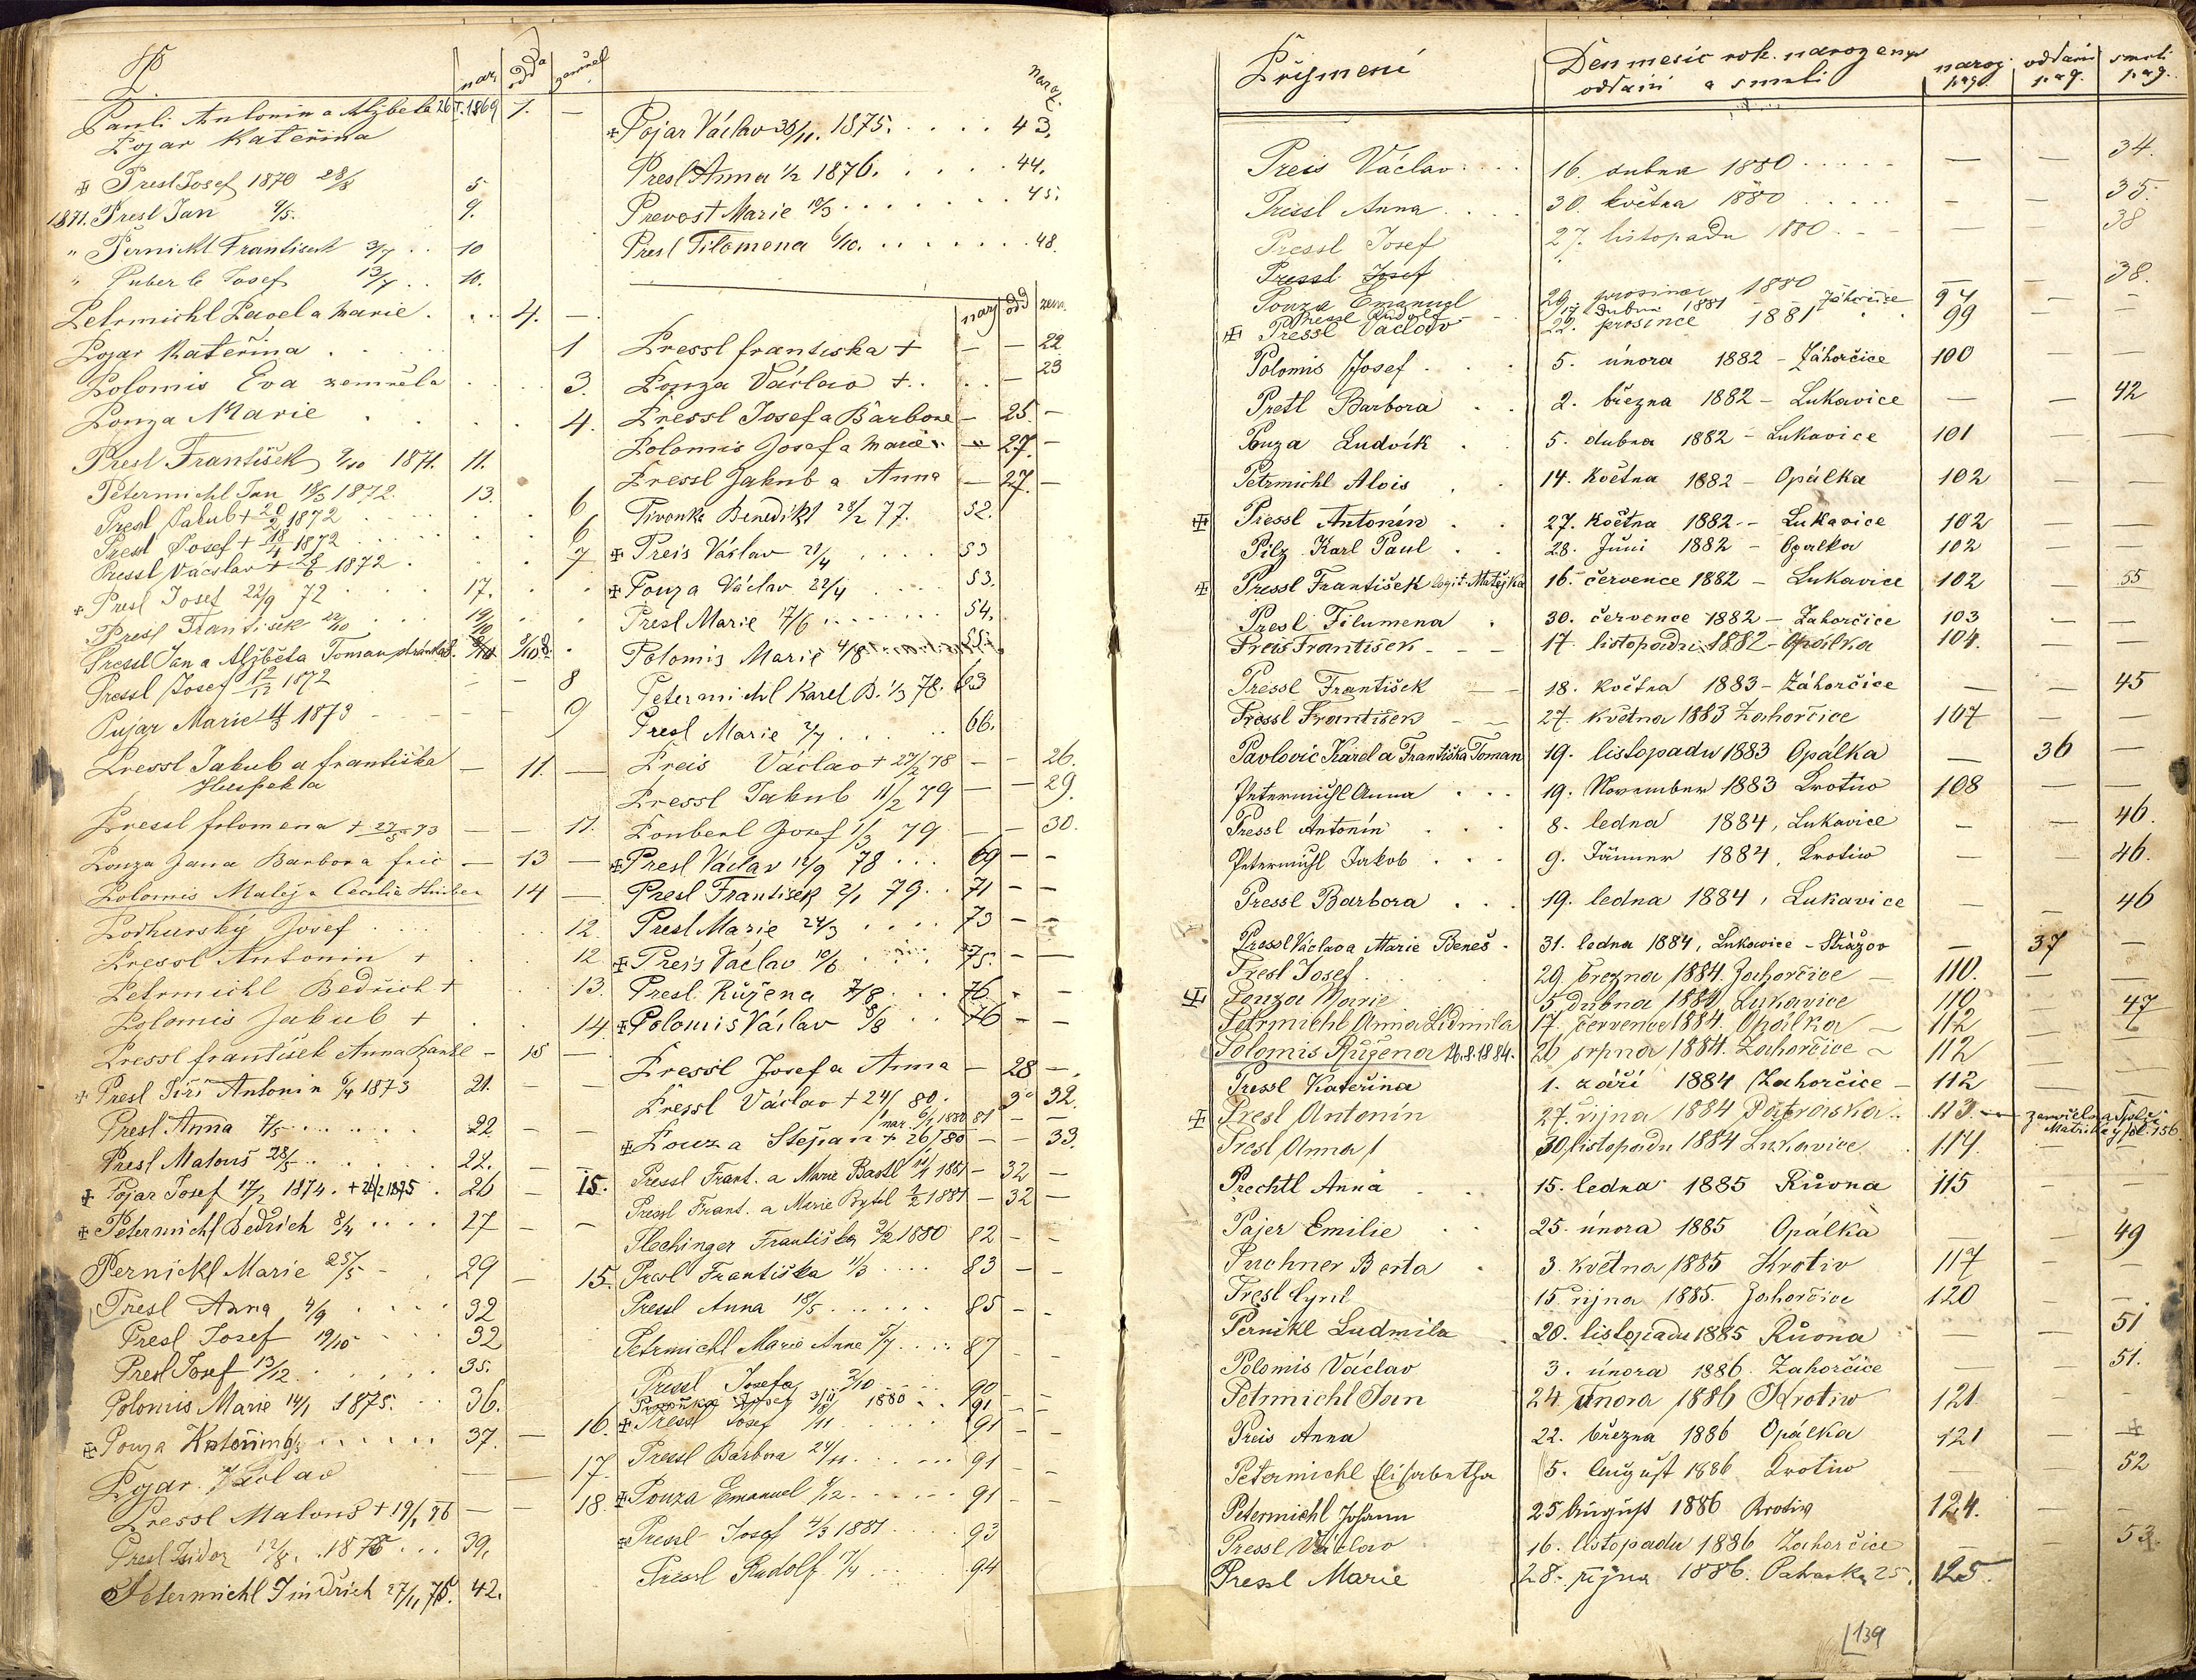 P.
nar. odd. zemřel
Pauli Antonin a Alžběta 26/I. 1869 1. —
Pojar Kateřina
✠ Presl Josef 1870 28/8 5
1871. Presl Jan 9/5. 9.
" Pernickl Frantisek 3/7 . . 10
" Puberl Josef 13/7 . . 10.
Petrmichl Pavel a Marie . . . 4. —
Pojar Kateřina . . . 1
Polomis Eva zemřela . . . 3.
Pouza Marie . . . 4.
Presl František 2/10 1871. 11.
Petermichl Jan 18/3 1872. 13.
Presl Jakub + 20/2 1872 . . . 6
Pressl Josef + 18/4 1872 . . . 6
Pressl Václav + 28/6 1872 . . . 7
+ Presl Josef 22/9 72 . . . 17.
Presl František 22/10 . . . 19/10
Pressl Jan a Alžběta Toman
Pressl Josef 12/12 1872 — — 8
Pujar Marie 4/3 1873 — — 9
Pressl Jakub a františka — 11. —
Huspekla
Pressl filomena + 27/5 73 — — 11.
Pouza Jana Barbora fric — 13 —
Polomis Matěj a Cecilia 14 —
Podhurský Josef . . . 12.
Pressl Antonin + . . . 12.
Petrmichl Bedřich + . . 13.
Polomis Jakub + . . 14.
Pressl františek Anna — 15 —
+ Presl Jiří Antonin 6/4 1873 21. — —
Presl Anna 7/5 . . . . 22 — —
Presl Matouš 28/5 . . . . 22. — —
✠ Pojar Josef 17/2 1874. + 26/2 1875 . 26 — 15.
✠ Petermichl Bedřich 8/4 . . . . 27 — —
Pernickl Marie 25/5 — . 29 — 15.
Presl Anna 4/9 . . . . 32
Presl Josef 19/10 . . . 32
Presl Josef 13/12 . . . . . 35.
Polomis Marie 14/1 1875. . . 36.
✠ Pouza . . . . . 37. — 16.
Pojar Václav — — 17.
Pressl Matouš + 19/1 76 — — 18.
Presl Isidor 12/8. 1875 . . . 39.
Petermichl Jindřich 27/11 75. 42.
naroz.
✠ Pojar Václav 30/11. 1875. . . . . 43.
Presl Anna 1/2 1876. . . . . 44.
Prevost Marie 10/3 . . . . . . 45.
Presl Filomena 6/10. . . . . . . 48.
nar odd zem.
Pressl frantiska + — — 22
Pouza Václav + . . . . — 23
Pressl Josef a Barbore — 25 —
Polomis Josef a Marie . — " 27. —
Pressl Jakub a Anna — 27. —
Pivonka Benedikt 28/2 77. 52.
✠ Preis Václav 21/4 . . . . 53
✠ Pouza Václav 22/4 . . . . 53.
Presl Marie 17/6 . . . . . . 54.
Polomis Marie 4/8 . . . 55.
Petermichl Karel B. 1/3 78. 63
Presl Marie 7/7 . . . . . 66.
Preis Václav + 27/2 78 — — 26.
Pressl Jakub 11/2 79 — — 29.
Pouberl Josef 1/3 79 — — 30.
✠ Presl Václav 19/9 78 . . . 69 — —
Presl František 2/1 79. . 71 — —
Presl Marie 24/3 . . . . 73 — —
✠ Preis Václav 10/6 . . . 75. — —
Presl Růžena 7/8 . . . 76 . —
✠ Polomis Václav 8/8 . . 76 — —
Pressl Josef a Anna — 28 — .
Pressl Václav + 24/1 80. 32.
nar. 6/1 1880 81 — —
✠ Pouza Stepan + 26/ 80 — — 33.
Pressl Frant. a Marie 1881 — 32 —
Pressl Frant. a Marie 2/2 1881 — 32 —
Plechinger Františka 5/2 1880 82 — —
Presl Františka 11/3 . . . . 83 — —
Pressl Anna 18/5 . . . . . . 85 — —
Petrmichl Marie Anna 5/7 . . . . 87 — —
Pressl Josefa 2/10 . . . 90 — —
Josef 1880 . . 91 — —
✠ Pressl Josef 1/11 . . . . 91 — —
Pressl Barbora 24/11 . . . . . . 91 — —
✠ Pouza Emanuel 8/12 . . . . . . 91 — —
✠ Pressl Josef 4/3 1881 . . . . 93
Pressl Rudolf 17/4 . . . . 94
Přijmení Den mesíc rok. narozeny naroz. oddaní smrti
oddaní a smrti pag. pag. pag.
Preis Václav . . . . 16. dubna 1880 . . . . . — — 34.
Pressl Anna . . . . 30. května 1880 . . . . . — — 35.
Pressl Josef 27. listopadu 1880 . — — — — 38
Pressl Josef
Pouza Emanuel 29. prosince 1880 — — 38.
Pressl Rudolf 17 dubna 1881 Záhorčice 94 — —
✠ Pressl Václav 22. prosince 1881 " . 99 — —
Polomis Josef . . . 5. února 1882 – Záhorčice 100 — —
Pretl Barbora . . 2. března 1882 – Lukavice — — 42
Pouza Ludvík . . 5. dubna 1882 – Lukavice 101 — —
Petrmichl Alois . . 14. Května 1882 – Opálka 102 — —
✠ Pressl Antonín . . 27. Května 1882 – Lukavice 102 — —
Pilz Karl Paul . . 28. Juni 1882 – Opalka 102 — —
✠ Pressl František legit. Matějka 16. července 1882 – Lukavice 102 — 55
Presl Filumena . 30. července 1882 – Zahorčice 103 — —
Preis František – – – 17. listopadu 1882 – Opálka 104. — —
Pressl František — — 18. Května 1883 – Záhorčice — — 45
Pressl František – ~ 27. května 1883 Zahorčice 107 — —
Pavlovič Karel a Františka Toman 19. listopadu 1883 Opálka — 36 —
Petermichl Anna . . . 19. November 1883 Krotiw 108 — —
Pressl Antonín . . . 8. ledna 1884, Lukavice — — 46.
Petermichl Jakob . . . 9. Jänner 1884, Krotiw — — 46.
Pressl Barbora . . . 19. ledna 1884, Lukavice — — 46
Pressl Václav a Marie Beneš . 31. ledna 1884, Lukavice – Strážov — 37 —
Presl Josef . . 29. března 1884 Zahorčice — 110. — —
✠ Pouza Marie 5 dubna 1884 Lukavice 110 — 47
Petrmichl Anna Lidmila 17. července 1884. Opálka — 112 — —
Polomis Růžena 26.8.1884. 26 srpna 1884. Zahorčice ~ 112 — —
Pressl Kateřina 1. září 1884 Zahorčice – 112 — —
✠ Presl Antonín 27. října 1884 . . 113. —
Presl Anna 30. listopadu 1884 Lukavice . 114. — —
Prechtl Anna . . . 15. ledna 1885 Růvna 115 — —
Pajer Emilie . . 25. února 1885 Opálka — — 49
Puchner Berta . 3. května 1885 Krotiv 117 — —
Presl Cyril 15. října 1885. Zahorčice 120 — —
Pernikl Ludmila . 20. listopadu 1885 Růvna — — 51
Polomis Václav 3. února 1886. Zahorčice — — 51.
Petrmichl Jan 24. února 1886 Krotiw 121 — —
Preis Anna 22. března 1886 Opálka 121 — ✠
Petermichl Elisabetha 5. August 1886 Krotiw — — 52
Petermichl Johann 25 August 1886 Krotiw 124. — —
Pressl Václav 16. listopadu 1886 Zahorčice — — 53.
Pressl Marie 28. října 1886. 25. 125.
139